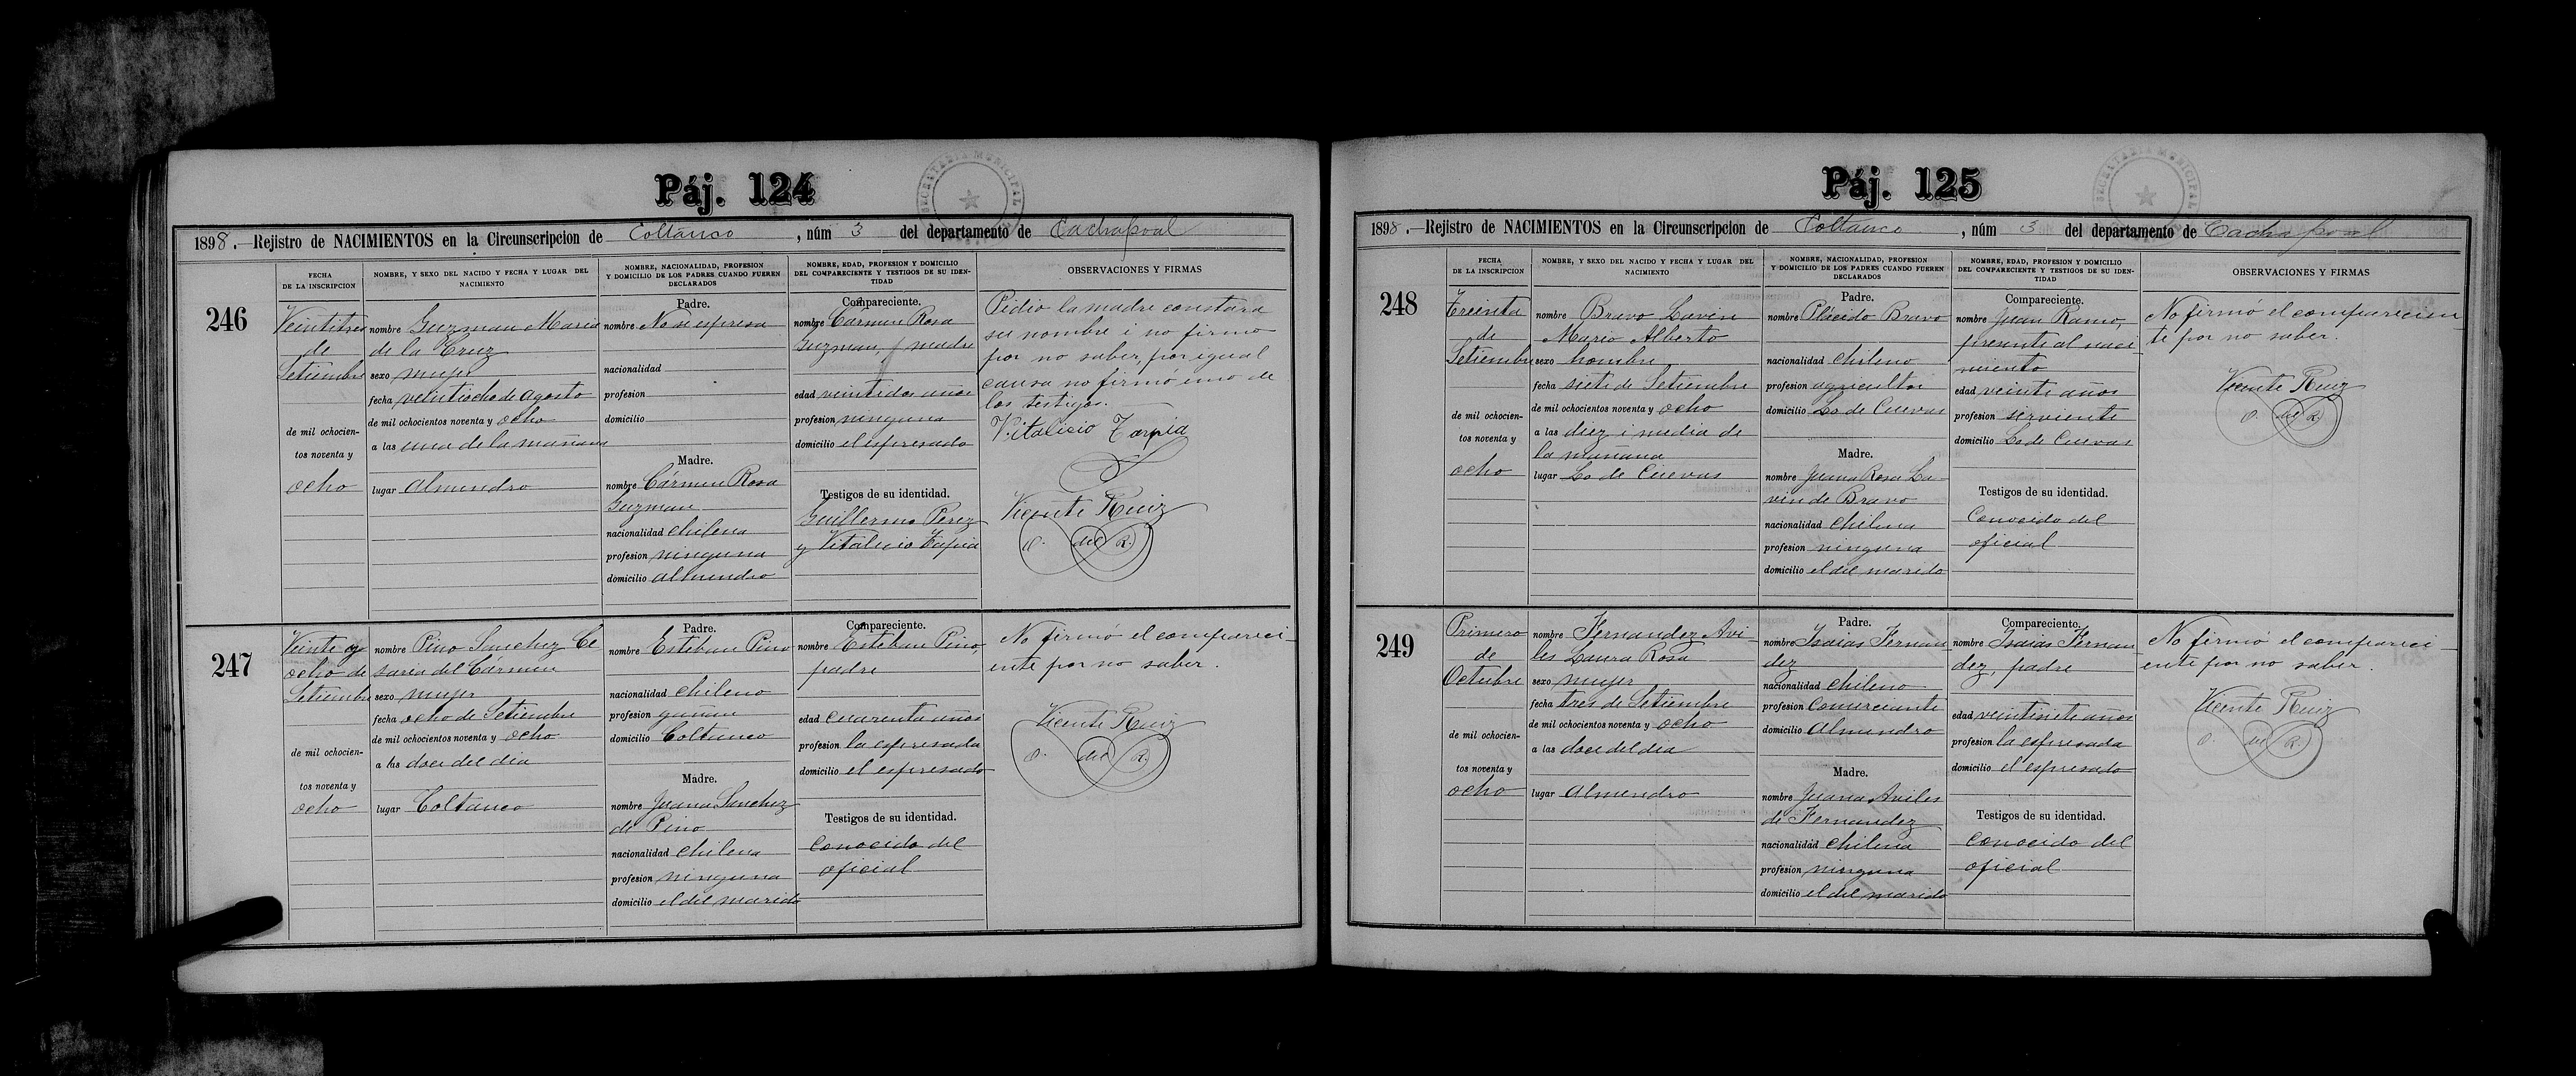 Páj. 124
SECRETARIA MUNICIPAL
1898. Rejistro de NACIMIENTOS en la Circunscripcion de Coltauco, núm 3 del departamento de Cachapoal
FECHA
DE LA INSCRIPCION
NOMBRE, Y SEXO DEL NACIDO Y FECHA Y LUGAR DEL
NACIMIENTO
NOMBRE, NACIONALIDAD, PROFESION
Y DOMICILIO DE LOS PADRES CUANDO FUEREN
DECLARADOS
NOMBRE, EDAD, PROFESION Y DOMICILIO
DEL COMPARECIENTE Y TESTIGOS DE SU IDEN-
TIDAD
OBSERVACIONES Y FIRMAS
246
Veintitres
de
Setiembre
de mil ochocien-
tos noventa y
ocho
nombre Guzman Maria
de la Cruz
sexo mujer
fecha veintiocho de Agosto
de mil ochocientos noventa y ocho
a las una de la mañana
lugar Almendro
Padre.
nombre No se espresa
nacionalidad
profesion
domicilio
Madre.
nombre Cármen Rosa
Guzman
nacionalidad chilena
profesion ninguna
domicilio Almendro
Compareciente.
nombre Cármen Rosa
Guzman, madre
edad veintidos años
profesion ninguna
domicilio el espresado
Testigos de su identidad.
Guillermo Perez
y Vitalicio Tapia
Pidio la madre constara
su nombre i no firmo
por no saber, por igual
causa no firmó uno de
los testigos.
Vitalicio Tapia
Vicente Ruiz
O. del R.
247
Veinte y
ocho de
Setiembre
de mil ochocien-
tos noventa y
ocho
nombre Pino Sanchez Ce
saria del Cármen
sexo mujer
fecha ocho de Setiembre
de mil ochocientos noventa y ocho
a las doce del dia
lugar Coltauco
Padre.
nombre Esteban Pino
nacionalidad chileno
profesion gañan
domicilio Coltauco
Madre.
nombre Juana Sanchez
de Pino
nacionalidad chilena
profesion ninguna
domicilio el del marido
Compareciente.
nombre Esteban Pino,
padre
edad cuarenta años
profesion la espresada
domicilio el espresado
Testigos de su identidad.
Conocido del
oficial
No firmó el compareci-
ente por no saber.
Vicente Ruiz
O. del R.
Páj. 125
SECRETARIA MUNICIPAL
1898. Rejistro de NACIMIENTOS en la Circunscripcion de Coltauco, núm 3 del departamento de Cachapoal
FECHA
DE LA INSCRIPCION
NOMBRE, Y SEXO DEL NACIDO Y FECHA Y LUGAR DEL
NACIMIENTO
NOMBRE, NACIONALIDAD, PROFESION
Y DOMICILIO DE LOS PADRES CUANDO FUEREN
DECLARADOS
NOMBRE, EDAD, PROFESION Y DOMICILIO
DEL COMPARECIENTE Y TESTIGOS DE SU IDEN-
TIDAD
OBSERVACIONES Y FIRMAS
248
Treinta
de
Setiembre
de mil ochocien-
tos noventa y
ocho
nombre Bravo Lavin
Mario Alberto
sexo hombre
fecha siete de Setiembre
de mil ochocientos noventa y ocho
a las diez i media de
la mañana
lugar Lo de Cuevas
Padre.
nombre Plácido Bravo
nacionalidad chileno
profesion agricultor
domicilio Lo de Cuevas
Madre.
nombre Juana Rosa La-
vin de Bravo
nacionalidad chilena
profesion ninguna
domicilio el del marido
Compareciente.
nombre Juan Ramo,
presente al naci-
miento
edad veinte años
profesion sirviente
domicilio Lo de Cuevas
Testigos de su identidad.
Conocido del
oficial
No firmó el comparecien
te por no saber.
Vicente Ruiz
O. del R.
249
Primero
de
Octubre
de mil ochocien-
tos noventa y
ocho
nombre Fernandez Avi-
les Laura Rosa
sexo mujer
fecha tres de Setiembre
de mil ochocientos noventa y ocho
a las doce del dia
lugar Almendro
Padre.
nombre Isaias Fernan
dez
nacionalidad chileno
profesion Comerciante
domicilio Almendro
Madre.
nombre Juana Aviles
de Fernandez
nacionalidad chilena
profesion ninguna
domicilio el del marido
Compareciente.
nombre Isaias Fernan
dez, padre
edad veintisiete años
profesion la espresada
domicilio el espresado
Testigos de su identidad.
Conocido del
oficial
No firmó el compareci-
ente por no saber.
Vicente Ruiz
O. del R.